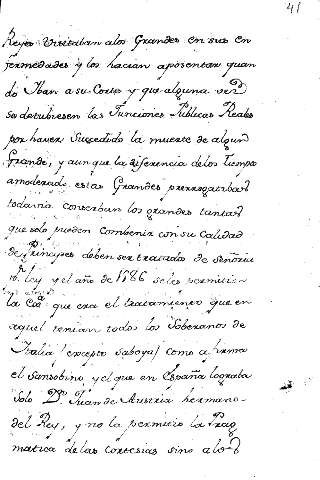 41
Reyes visitaban alos Grandes en sus en
fermedades y los hacian aposentar quan
do Iban a su Corte y que alguna vez
se detubiesen las Funciones Publicas Reales
por haver Succedido la muerte de algun
Grande, y aun que la diferencia de los Tiempos
amoderado estas Grandes prerrogatibas
todavia conserban los grandes tantas
que solo pueden combenir con su Calidad
de Principes deben ser tratados de Señoria
ley y el año de 1786 se les permitio
la que era el tratamiento que en
aquel tenian todos los Soberanos de
Italia (excepto saboya) como afirma
el Sansobino y el que en España lograba
solo Dn. Juan de Austria hermano
del Rey, y no la permitio la Prag
matica de las cortesias sino alos